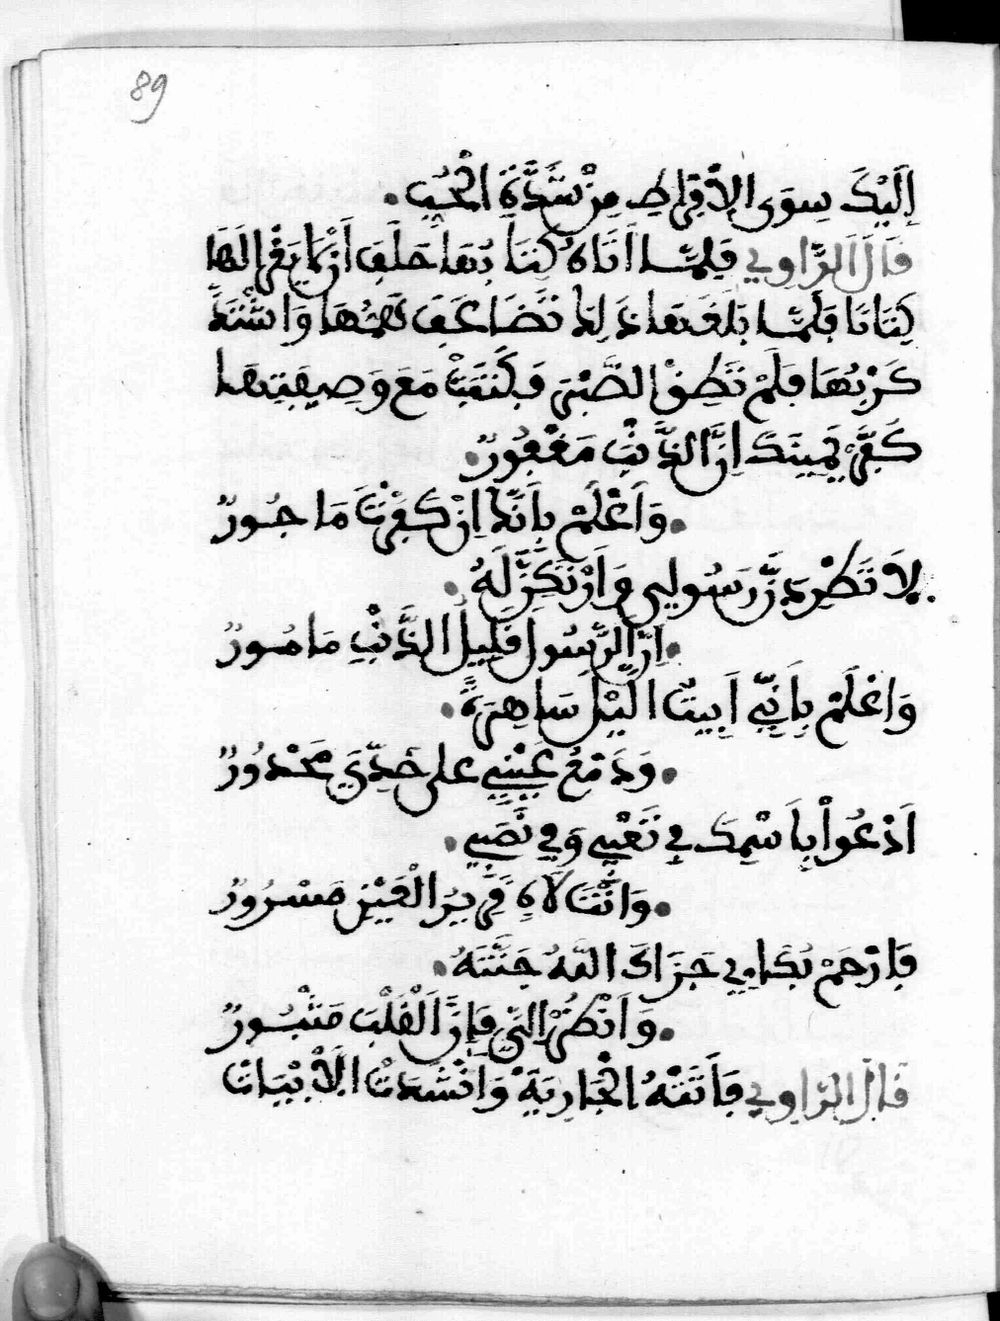 89
اِلَيْكَ سِوَى الاِفْرَاطِ مِنْ شَدَّةِ الْحُبِّ.
قَالَ الرَّاوِي فَلَمَّا اَتَاهُ كِتَابُهَا حَلَفَ اَنْ لَا يَقْرَا لَهَا
كِتَابًا فَلَمَّا بَلَغَهَا ذَلِكَ تَضَاعَفَ هَمُّهَا وَاشْتَدَّ
كَرْبُهَا فَلَمْ تَطِقْ الصَّبْرَ فَكَتَبَتْ مَعَ وَصِيفَتِهَا
كَفِّرْ يَمِينَكَ اِنَّ الذَّنْبَ مَغْفُورٌ.
.وَاَعْلَمْ بِاَنَّكَ اِنْ كَفَّرْتَ مَاجُورٌ
لاَ تَطْرِدَنَّ رَسُولِي وَارْتَكِنْ لَهُ.
.اِنَّ الرَّسُولَ قَلِيلُ الذَّنْبِ مَامُورٌ
وَاعْلَمْ بِاَنِّي اَبِيتُ اللَّيْلَ سَاهِرَةً.
.وَدَمْعُ عَيْنِي عَلى خَدِّيَ مَحْدُورٌ
اَدْعُواْ بِاَسْمِكَ فِي تَعْبِي وَفِي نَصَبِي.
.وَانْتَ لاَهٍ قَرِيرُ الْعَيْنِ مَسْرُورٌ
فَارْحَمْ بُكَاوِي جَزَاكَ اللَّهُ جَنَّتَهُ.
.وَاَنْظُرْ اِلَيَّ فَاِنَّ اَلْقَلْبَ مَثْبُورٌ
قَالَ الرَّاوِي فَاَتَتْهُ الْجَارِيَةُ وَانْشَدَتْ الاَبْيَاتَ